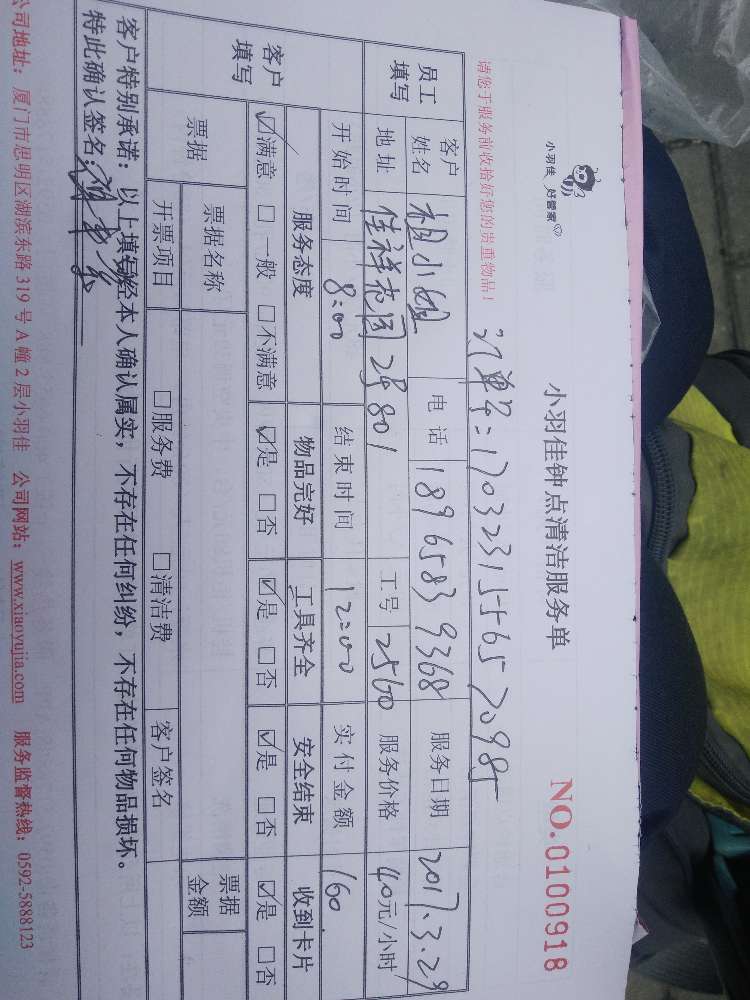 小羽佳 好管家
小羽佳钟点清洁服务单
NO.0100918
请您于服务前收拾好您的贵重物品！
订单号：17032315565 20985
员工填写 客户姓名 祖小姐 电话 18965839368 服务日期 2017.3.29
地址 佳祥花园 2号 801 工号 2560 服务价格 40元/小时
开始时间 8:00 结束时间 12:00 实付金额 160
客户填写 服务态度 物品完好 工具齐全 安全结束 收到卡片
☑满意 □一般 □不满意 ☑是 □否 ☑是 □否 ☑是 □否 ☑是 □否
票据 票据名称 票据金额
开票项目 □服务费 □清洁费 客户签名
客户特别承诺：以上填写经本人确认属实，不存在任何纠纷，不存在任何物品损坏。
特此确认签名：
公司地址：厦门市思明区湖滨东路 319 号 A 幢 2 层小羽佳 公司网站：www.xiaoyujia.com 服务监督热线：0592-5888123